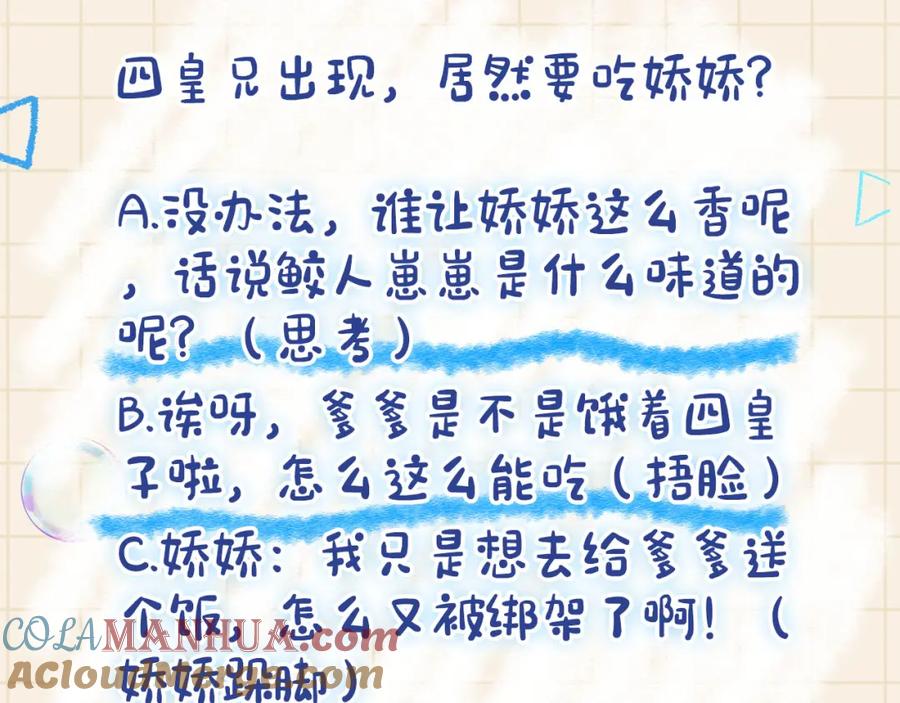 四皇兄出现，居然要吃娇娇?
A.没办法，谁让娇娇这么香呢
，话说鲛人崽崽是什么味道的
呢?（思考）
B.诶呀，爹爹是不是饿着四皇
子啦，怎么这么能吃（捂脸）
C.娇娇：我只是想去给爹爹送
个饭，怎么又被绑架了啊!（
娇娇跺脚）
COLAMANHUA.com
ACloudMerge.com